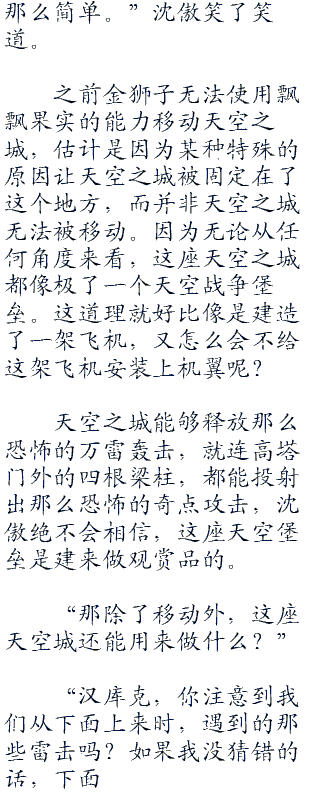 那么简单。”沈傲笑了笑
道。
之前金狮子无法使用飘
飘果实的能力移动天空之
城，估计是因为某种特殊的
原因让天空之城被固定在了
这个地方，而并非天空之城
无法被移动。因为无论从任
何角度来看，这座天空之城
都像极了一个天空战争堡
垒。这道理就好比像是建造
了一架飞机，又怎么会不给
这架飞机安装上机翼呢？
天空之城能够释放那么
恐怖的万雷轰击，就连高塔
门外的四根梁柱，都能投射
出那么恐怖的奇点攻击，沈
傲绝不会相信，这座天空堡
垒是建来做观赏品的。
“那除了移动外，这座
天空城还能用来做什么？”
“汉库克，你注意到我
们从下面上来时，遇到的那
些雷击吗？如果我没猜错的
话，下面